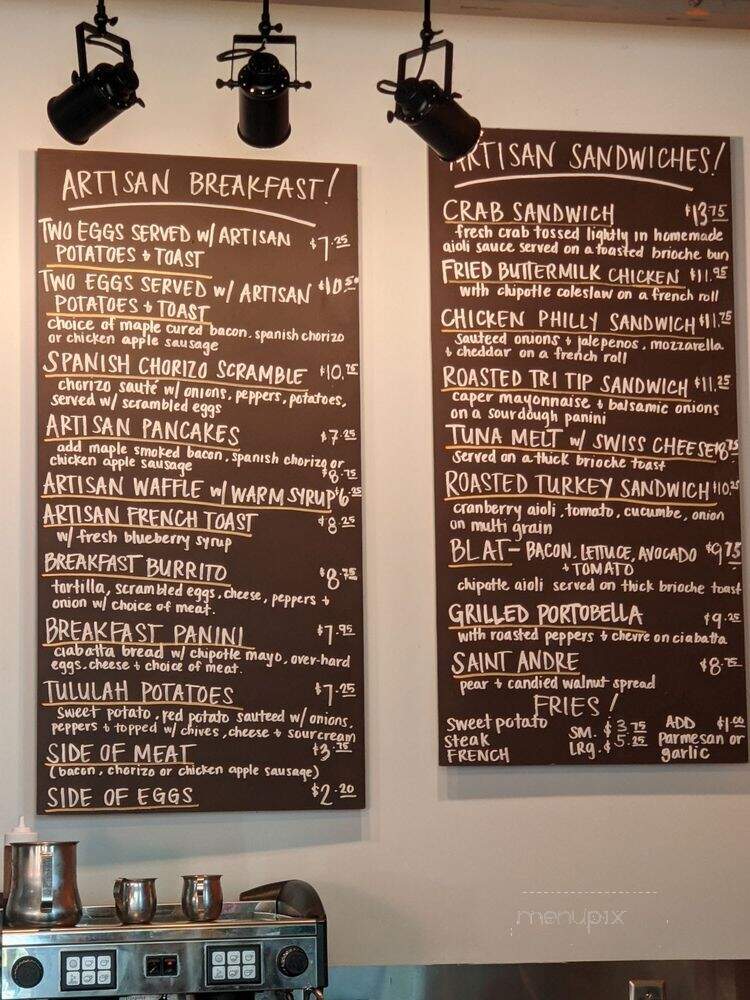 ARTISAN BREAKFAST!
TWO EGGS SERVED W/ ARTISAN
POTATOES + TOAST $7.25
TWO EGGS SERVED W/ ARTISAN
POTATOES + TOAST
choice of maple cured bacon, spanish chorizo
or chicken apple sausage
SPANISH CHORIZO SCRAMBLE $10.75
chorizo sauté w/ onions, peppers, potatoes,
served w/ scrambled eggs
ARTISAN PANCAKES $7.25
add maple smoked bacon, spanish chorizo or
chicken apple sausage $8.75
ARTISAN WAFFLE w/ WARM SYRUP $6.25
ARTISAN FRENCH TOAST $8.25
w/ fresh blueberry syrup
BREAKFAST BURRITO $8.75
tortilla, scrambled eggs, cheese, peppers +
onion w/ choice of meat.
BREAKFAST PANINI $7.95
ciabatta bread w/ chipotle mayo, over-hard
eggs, cheese + choice of meat.
TULULAH POTATOES $7.25
sweet potato, red potato sauteed w/ onions,
peppers + topped w/ chives, cheese + sour cream
SIDE OF MEAT $3.75
(bacon, chorizo or chicken apple sausage)
SIDE OF EGGS $2.20
ARTISAN SANDWICHES!
CRAB SANDWICH $13.75
fresh crab tossed lightly in homemade
aioli sauce served on a toasted brioche bun
FRIED BUTTERMILK CHICKEN $11.95
with chipotle coleslaw on a french roll
CHICKEN PHILLY SANDWICH $11.75
sauteed onions + jalepenos, mozzarella
+ cheddar on a french roll
ROASTED TRI TIP SANDWICH $11.25
caper mayonnaise + balsamic onions
on a sourdough panini
TUNA MELT w/ SWISS CHEESE $8.75
served on a thick brioche toast
ROASTED TURKEY SANDWICH $10.25
cranberry aioli, tomato, cucumbe, onion
on multi grain
BLAT - BACON, LETTUCE, AVOCADO $9.75
+ TOMATO
chipotle aioli served on thick brioche toast
GRILLED PORTOBELLA $9.25
with roasted peppers + chevre on ciabatta
SAINT ANDRE $8.75
pear + candied walnut spread
FRIES!
sweet potato SM. $3.75 ADD $1.00
steak LRG. $5.25 parmesan or
FRENCH garlic
menupix